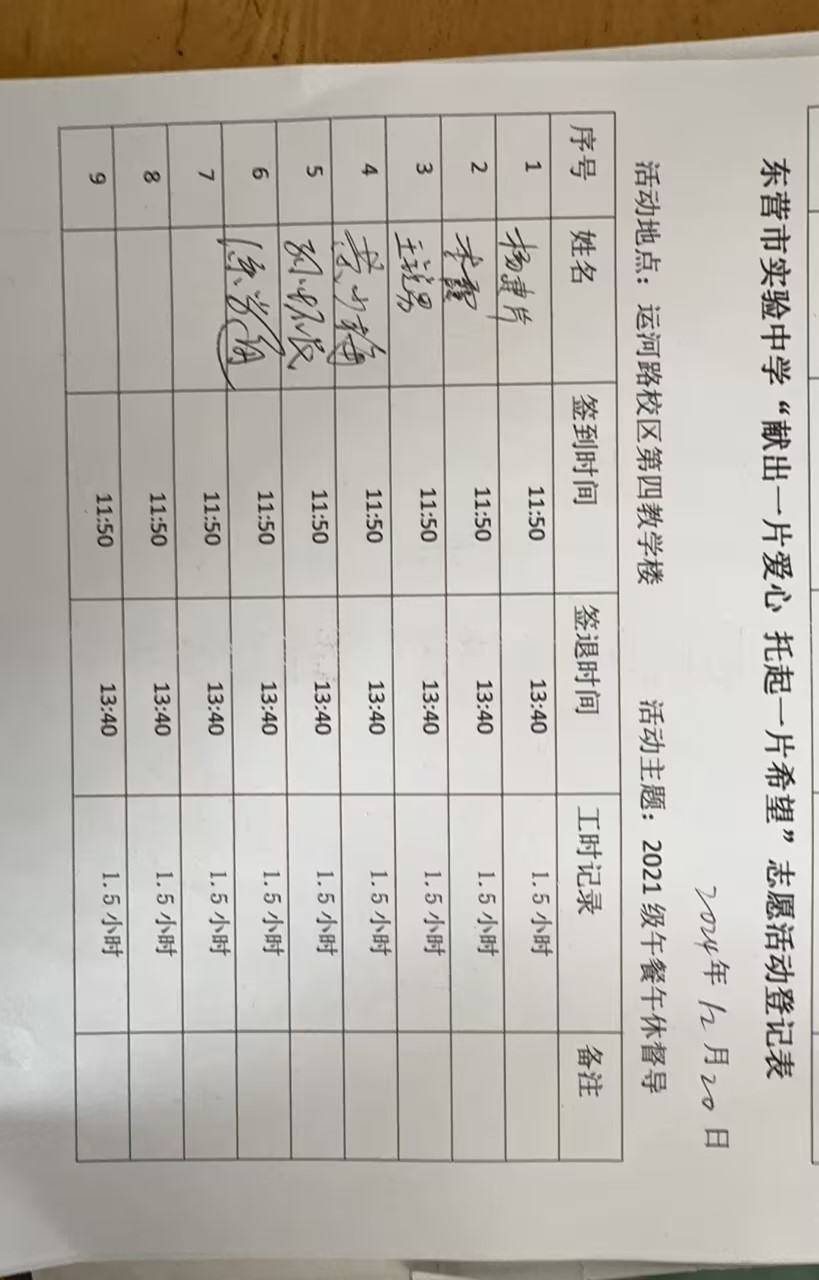 东营市实验中学“献出一片爱心 托起一片希望”志愿活动登记表
2024年12月20日
活动地点：运河路校区第四教学楼 活动主题：2021级午餐午休督导
序号 姓名 签到时间 签退时间 工时记录 备注
1 11:50 13:40 1.5小时
2 11:50 13:40 1.5小时
3 11:50 13:40 1.5小时
4 11:50 13:40 1.5小时
5 11:50 13:40 1.5小时
6 11:50 13:40 1.5小时
7 11:50 13:40 1.5小时
8 11:50 13:40 1.5小时
9 11:50 13:40 1.5小时